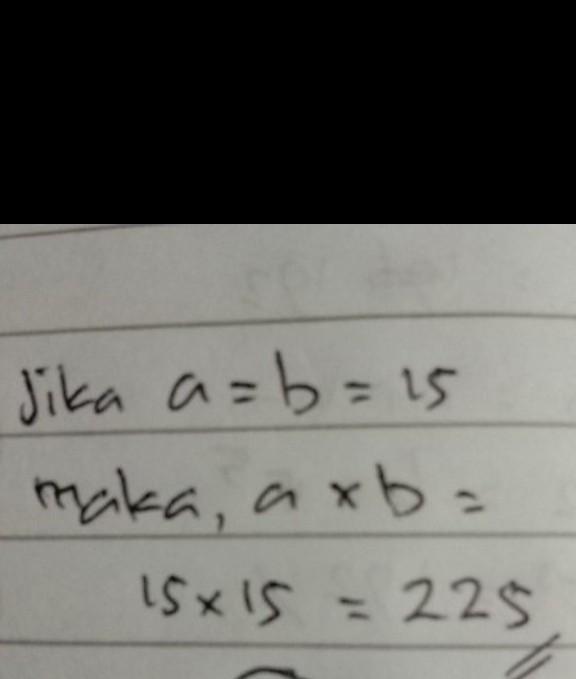 Jika a = b = 15
maka, a × b =
15 × 15 = 225